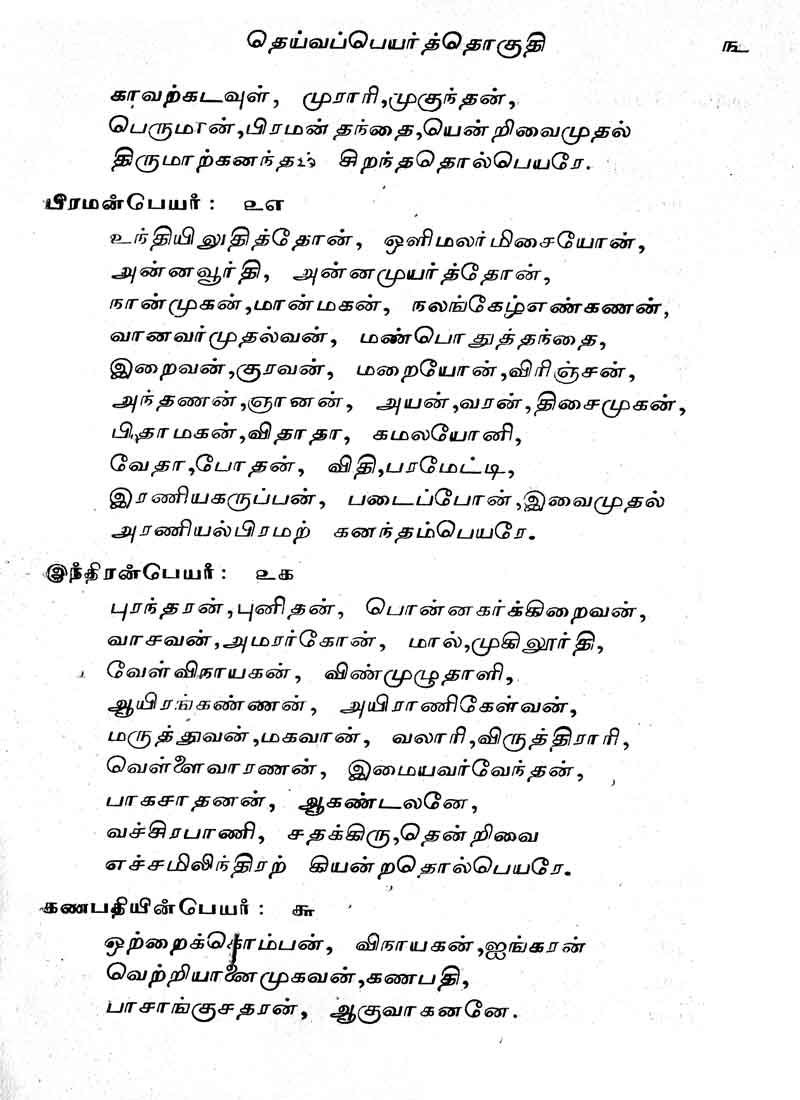 தெய்வப்பெயர்த்தொகுதி ௩
காவற்கடவுள், முராரி,முகுந்தன்,
பெருமான்,பிரமன் தந்தை,யென் றிவைமுதல்
திருமாற்கனந்தம் சிறந்ததொல்பெயரே.
பிரமன்பெயர் : ௨௭
உந்தியிலுதித்தோன், ஒளிமலர்மிசையோன்,
அன்னவூர்தி, அன்னமுயர்த்தோன்,
நான்முகன்,மான்மகன், நலங்கேழ்எண்கணன்,
வானவர்முதல்வன், மண்பொதுத்தந்தை,
இறைவன்,குரவன், மறையோன்,விரிஞ்சன்,
அந்தணன்,ஞானன், அயன்,வரன்,திசைமுகன்,
பிதாமகன்,விதாதா, கமலயோனி,
வேதா,போதன், விதி,பரமேட்டி,
இரணியகருப்பன், படைப்போன்,இவைமுதல்
அரணியல்பிரமற் கனந்தம்பெயரே.
இந்திரன்பெயர் : ௨௧
புரந்தரன்,புனிதன், பொன்னகர்க்கிறைவன்,
வாசவன்,அமரர்கோன், மால்,முகிலூர்தி,
வேள்விநாயகன், விண்முழுதாளி,
ஆயிரங்கண்ணன், அயிராணிகேள்வன்,
மருத்துவன்,மகவான், வலாரி,விருத்திராரி,
வெள்ளைவாரணன், இமையவர்வேந்தன்,
பாகசாதனன், ஆகண்டலனே,
வச்சிரபாணி, சதக்கிரு,தென்றிவை
எச்சமிலிந்திரற் கியன்றதொல்பெயரே.
கணபதியின்பெயர் : ௮
ஒற்றைக்கொம்பன், விநாயகன்,ஐங்கரன்
வெற்றியானைமுகவன்,கணபதி,
பாசாங்குசதரன், ஆகுவாகனனே.